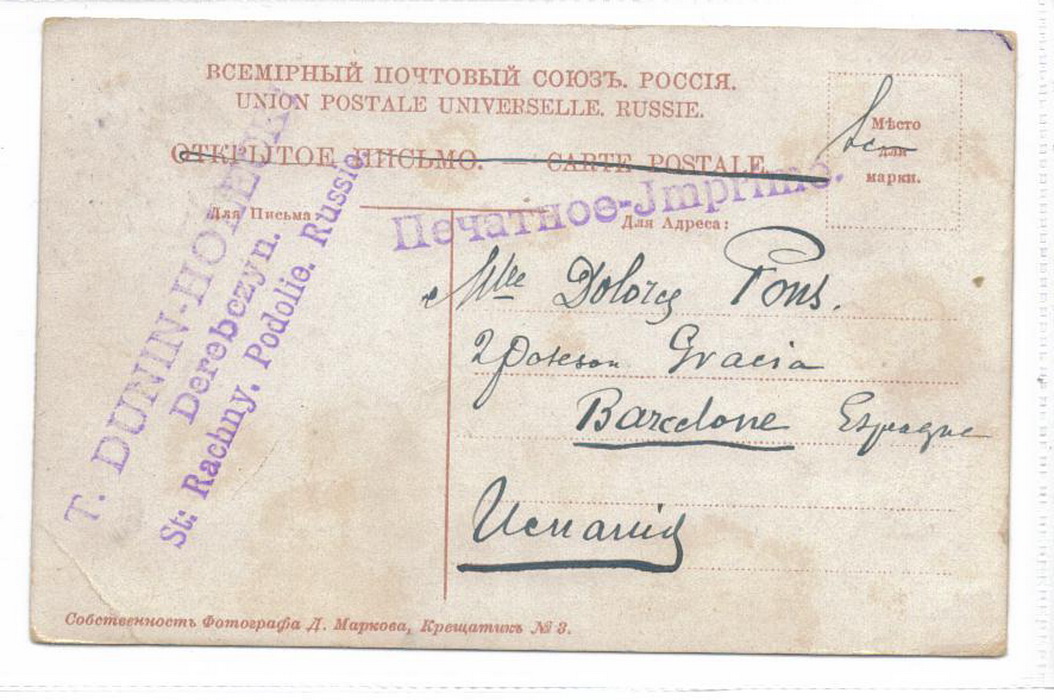 ВСЕМІРНЫЙ ПОЧТОВЫЙ СОЮЗЪ. РОССІЯ.
UNION POSTALE UNIVERSELLE. RUSSIE.
ОТКРЫТОЕ ПИСЬМО. CARTE POSTALE.
Мѣсто
для
марки.
Для Письма:
Для Адреса:
Печатное-Jmprimé.
T. DUNIN-
Derebczyn.
St: Rachny. Podolie. Russie.
Mlle Dolores Pons.
2 Gracia
Barcelone Espagne
Испанія
Собственность Фотографа Д. Маркова, Крещатикъ № 3.